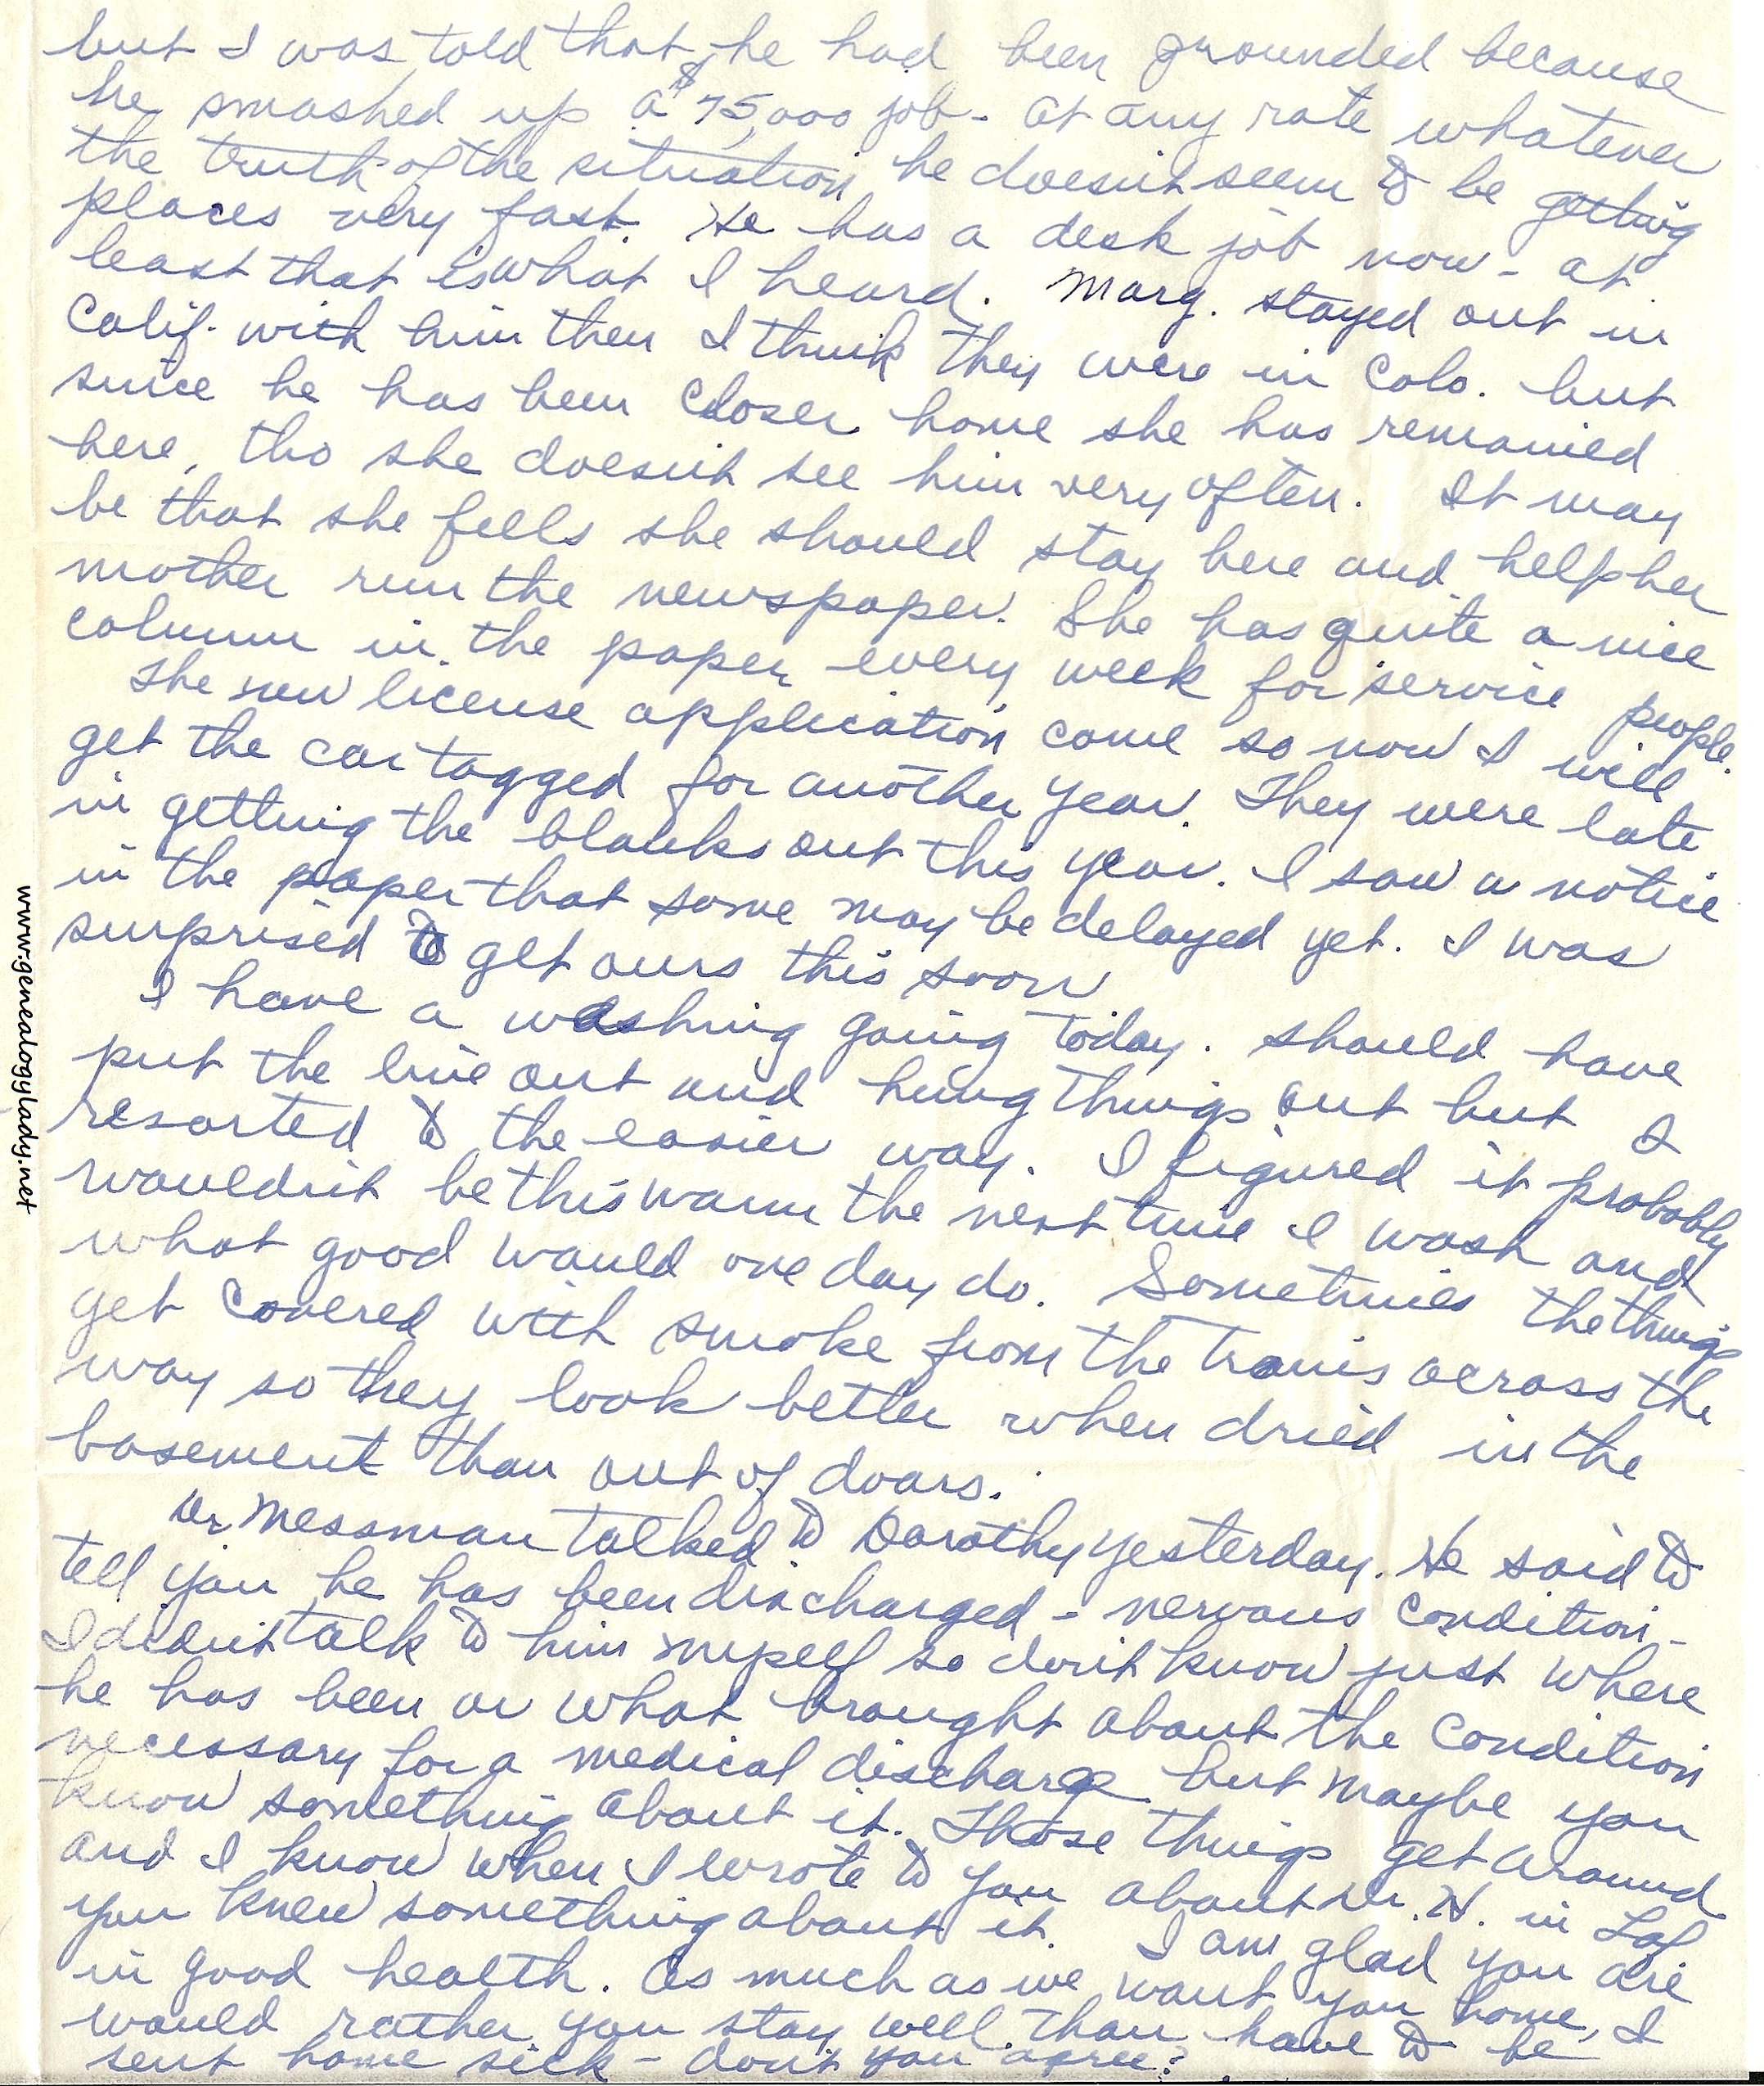 but I was told that he had been grounded because
he smashed up a $75,000 job - at any rate whatever
the truth of the situation he doesn't seem to be getting
places very fast. He has a desk job now - at
least that is what I heard. Marg. stayed out in
Calif. with him then I think they were in Colo. but
since he has been closer home she has remained
here, tho she doesn't see him very often. It may
be that she fells she should stay here and help her
mother run the newspaper. She has quite a nice
column in the paper every week for service people.
The new license application came so now I will
get the car tagged for another year. They were late
in getting the blanks out this year. I saw a notice
in the paper that some may be delayed yet. I was
surprised to get ours this soon
I have a washing going today. Should have
put the line out and hung things out but I
resorted to the easier way. I figured it probably
wouldn't be this warm the next time I wash and
what good would one day do. Sometimes the things
get covered with smoke from the trains across the
way so they look better when dried in the
basement than out of doors.
Dr Messman talked to Dorothy yesterday. He said to
tell you he has been discharged - nervous condition -
I didn't talk to him myself so don't know just where
he has been or what brought about the condition
necessary for a medical discharge but maybe you
know something about it. Those things get around
and I know when I wrote to you about Dr. N. in Laf
you knew something about it. I am glad you are
in good health. As much as we want you home, I
would rather you stay well than have to be
sent home sick - don't you agree?
www.genealogylady.net